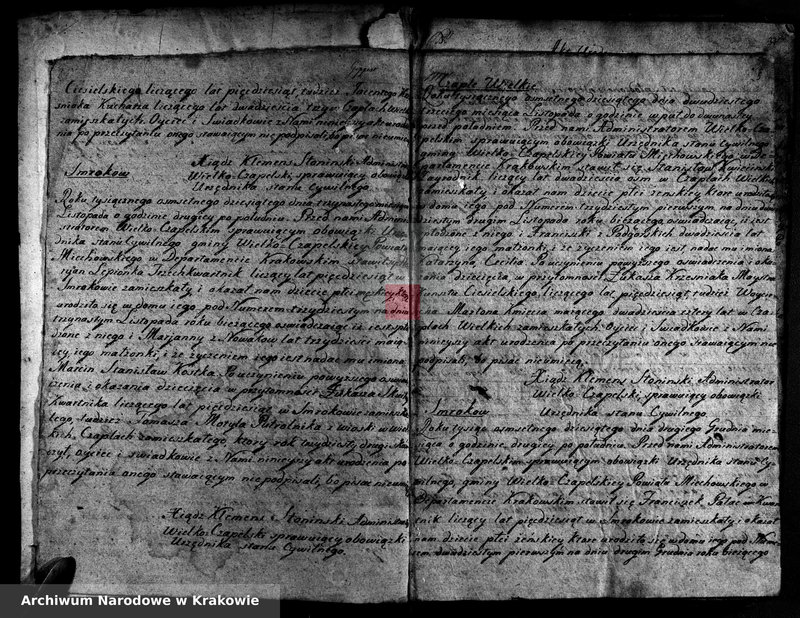 Ciesielskiego liczącego lat pięćdziesiąt, tudzież Walentego
śniaka Kucharza liczącego lat dwadzieścia
zamieszkałych Oyciec i Swiadkowie z Nami niniejszy akt
nia po przeczytaniu onego stawaiącym niepodpisali, bo pisac nieumieią
Xiądz Klemens Słoninski Administrator
Smrokow
Wielko-Czapelski, sprawuiący obowiązki
Urzędnika stanu Cywilnego.
Roku tysiącznego osmsetnego dziesiątego dnia trzynastego
Listopada o godzinie drugiey po południu. Przed nami Admini
stratorem Wielko Czapelskim sprawuiącym obowiązki Urzę
dnika stanu Cywilnego gminy Wielko-Czapelskiey Powiatu
Miechowskiego w Departamencie Krakowskim stawił się
Lepianka Trzechkwartnik liczący lat pięćdziesiąt w
Smrokowie zamieszkały i okazał nam dziecie płci męskiey, które
urodziło się w domu iego pod Numerem trzydziestym na dniu
trzynastym Listopada roku bieżącego oswiadczaiąc iż iest spło
dzone z niego i Maryanny z Nowakow lat trzydziesci maią
cey, iego małżonki, i że życzeniem iego iest nadac mu imiona
Marcin Stanisław Kostka. Po uczynieniu powyższego oswiad
czenia i okazania dziecięcia w przytomności Łukasza
Kwartnika liczącego lat pięćdziesiąt w Smrokowie zamieszka
łego, tudzież Tomasza Motyla Patrolnika z wioski w Wiel
kich Czaplach zamieszkałego ktory rok trzydziesty drugi skoń
czył, Oyciec i swiadkowie z Nami niniejszy akt urodzenia po
przeczytaniu onego stawaiącym niepodpisali, bo pisac nieumieią
Xiądz Klemens Słoninski Administrator
Wielko-Czapelski sprawuiący obowiązki
Urzędnika stanu Cywilnego.
Czaple Wielkie
Roku tysiącznego osmsetnego dziesiątego dnia dwudziestego
trzeciego miesiąca Listopada o godzinie w puł do dwunastey
przed południem. Przed nami Administratorem Wielko-Cza
pelskim sprawuiącym obowiązki Urzędnika stanu cywilnego
gminy Wielko-Czapelskiey Powiatu Miechowskiego w De
partamencie Krakowskim stawił się Stanisław Kwiecinski
zagrodnik liczący lat dwadzieścia osm w Czaplach Wielkich
zamieszkały i okazał nam dziecie płci żenskiey ktore urodziło
w domu iego pod Numerem trzydziestym pierwszym na dniu dwu
dziestym drugim Listopada roku bieżącego oswiadczaiąc iż iest
spłodzone z niego i Franciszki z dwadzieścia lat
maiącey iego małżonki, i że życzeniem iego iest nadac mu imiona
Katarzyna, Cecilia. Po uczynieniu powyższego oswiadczenia i oka
zania dziecięcia, w przytomności Łukasza Krzesniaka
Ciesielskiego, liczącego lat pięćdziesiąt, tudzież Woycie
cha Martona kmiecia maiącego dwadzieścia cztery lat w Cza
plach Wielkich zamieszkałych Oyciec i Swiadkowie z Nami
niniejszy akt urodzenia po przeczytaniu onego stawaiącym nie
podpisali, bo pisac nieumieią.
Xiądz Klemens Słoninski Administrator
Wielko-Czapelski, sprawuiący obowiązki
Smrokow
Urzędnika stanu Cywilnego.
Roku tysiąc osmsetnego dziesiątego dnia drugiego Grudnia mie
siąca o godzinie drugiey po południu. Przed nami Administratorem
Wielko-Czapelskim sprawuiącym obowiązki Urzędnika stanu Cy
wilnego, gminy Wielko Czapelskiey Powiatu Miechowskiego w
Departamencie Krakowskim stawił się Franciszek
liczący lat pięćdziesiąt w Smrokowie zamieszkały i okazał
nam dziecie płci żenskiey ktore urodziło się w domu iego pod Nume
rem dwudziestym pierwszym na dniu drugim Grudnia roku bieżącego
Archiwum Narodowe w Krakowie